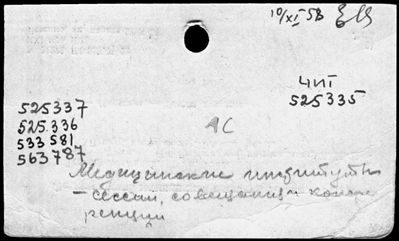 10/XI 58
ЧИТ
525335
525337
525.336
533 581
563787
АС
Медицинские институты
– сессии, совещания и конфе
ренции